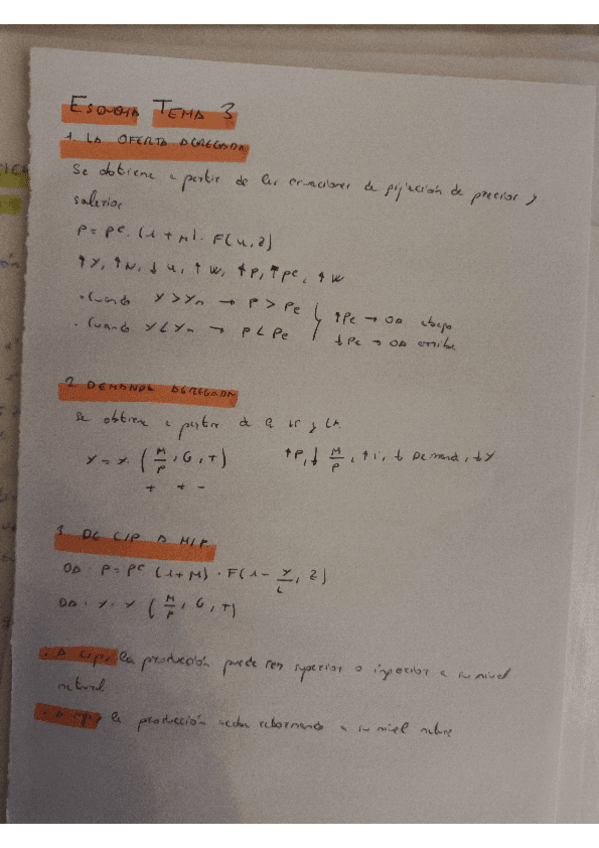 ESQUEMA TEMA 3
1. LA OFERTA AGREGADA
Se obtiene a partir de las ecuaciones de fijación de precios y
salarios
P = Pe · (1 + M) · F(u, z)
↑Y, ↑N, ↓u, ↑W, ↑P, ↑Pe, ↑W
· Cuando Y > Yn → P > Pe
· Cuando Y < Yn → P < Pe
↑Pe → OA abajo
↓Pe → OA arriba
2 DEMANDA AGREGADA
Se obtiene a partir de la IS y LM
Y = Y (M/P, G, T) ↑P, ↓ M/P, ↑i, ↓ Demand, ↓Y
+ + -
3. DE C/P A M/P
OA: P = Pe (1+M) · F(1 - Y/L, z)
DA: Y = Y (M/P, G, T)
· A C/P, la producción puede ser superior o inferior a su nivel
natural
· A M/P, la producción acaba retornando a su nivel natural